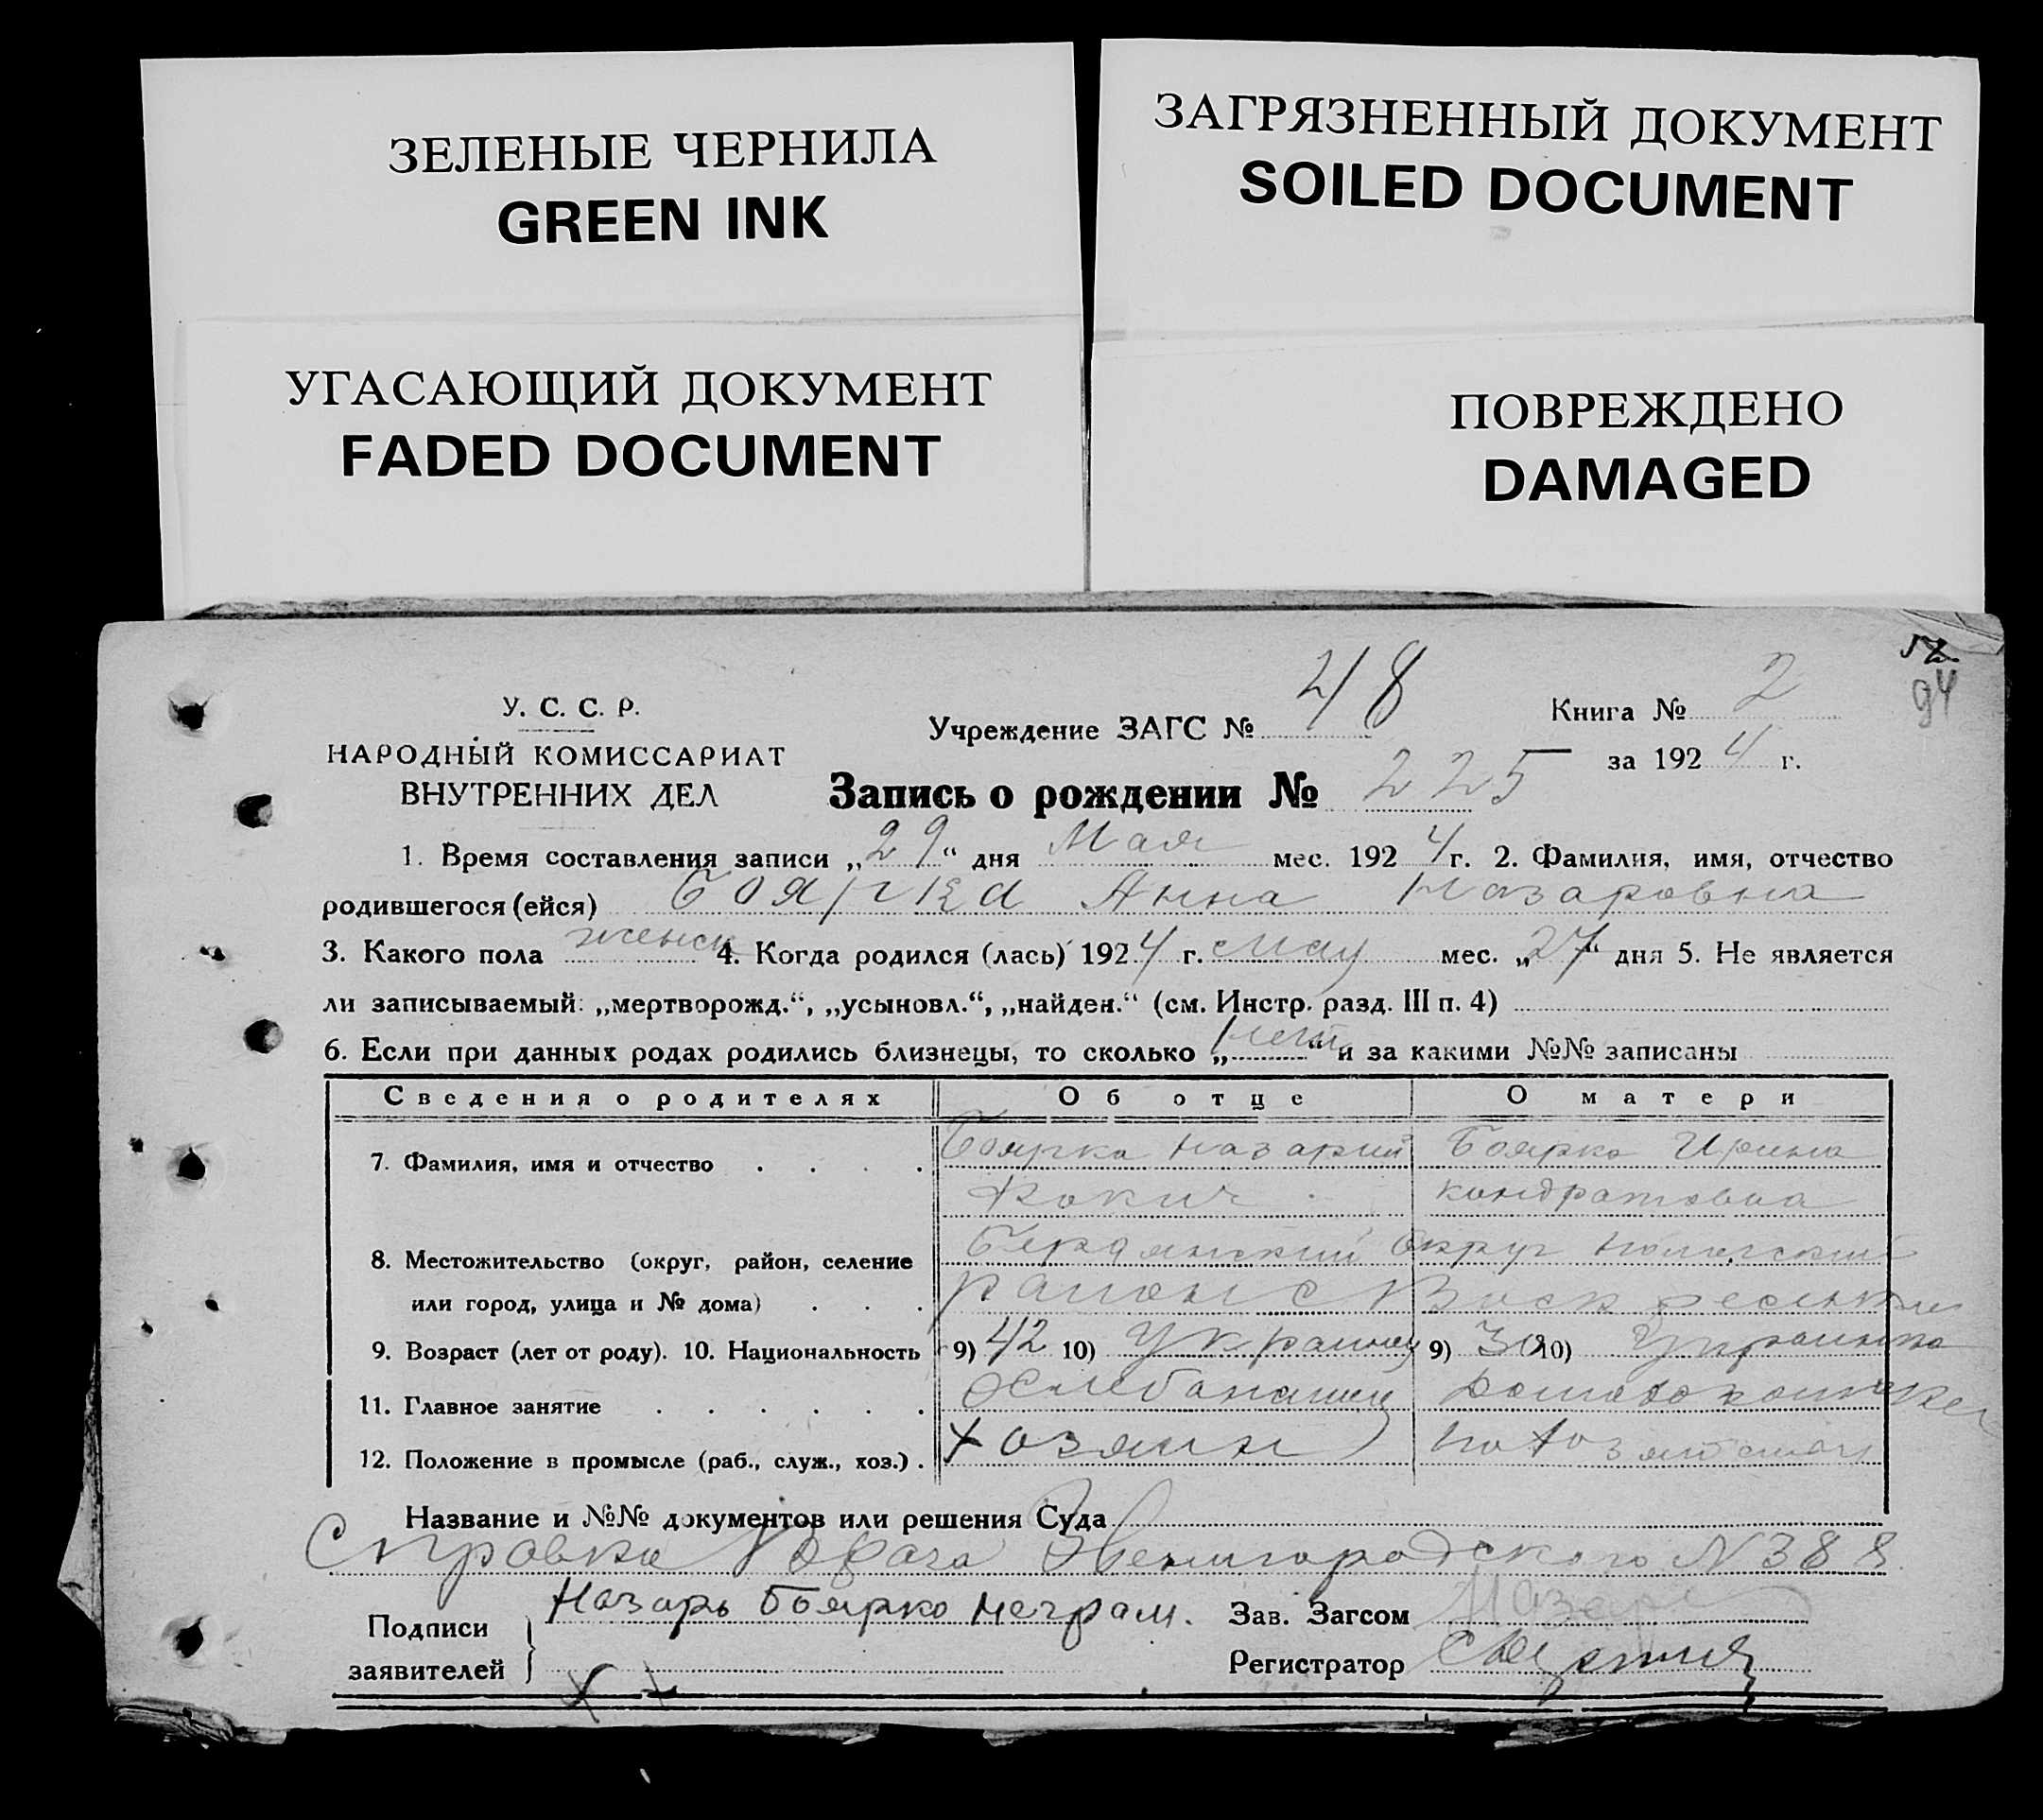 ЗЕЛЕНЫЕ ЧЕРНИЛА
GREEN INK
ЗАГРЯЗНЕННЫЙ ДОКУМЕНТ
SOILED DOCUMENT
УГАСАЮЩИЙ ДОКУМЕНТ
FADED DOCUMENT
ПОВРЕЖДЕНО
DAMAGED
94
У. С. С. Р.
НАРОДНЫЙ КОМИССАРИАТ
ВНУТРЕННИХ ДЕЛ
Учреждение ЗАГС № 48
Книга № 2
за 1924 г.
Запись о рождении № 225
1. Время составления записи „29“ дня Мая мес. 1924 г. 2. Фамилия, имя, отчество
родившегося (ейся) Боярка Анна Назаровна
3. Какого пола женск 4. Когда родился (лась) 1924 г. мау мес. „27“ дня 5. Не является
ли записываемый: „мертворожд.“, „усыновл.“, „найден.“ (см. Инстр. разд. III п. 4)
6. Если при данных родах родились близнецы, то сколько „нет“ и за какими №№ записаны
Сведения о родителях Об отце О матери
7. Фамилия, имя и отчество Боярко Назарий Боярко Ирина
Кондратовна
8. Местожительство (округ, район, селение Бердянский Округ
или город, улица и № дома) район с
9. Возраст (лет от роду). 10. Национальность 9) 42 10) Украинец 9) 30 10) Украинка
11. Главное занятие
12. Положение в промысле (раб., служ., хоз.) Хозяин
Название и №№ документов или решения Суда
Справка Врача Звенигородского N 388
Подписи заявителей Назарь Боярко неграм.
Зав. Загсом
Регистратор